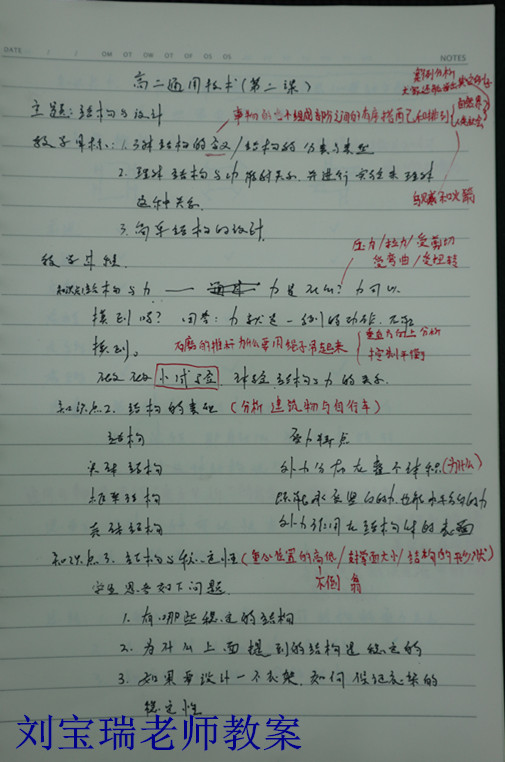 DATE
NOTES
高二通用技术(第二课)
案例分析
主题:结构与设计
自然界
事物的各个组成部分之间的有序搭配和排列
教学目标:1.了解结构的含义/结构的分类与类型
2.理解结构与力 的关系,并进行实验来理解
这种关系
3.简单结构的设计
压力/拉力/受剪切
受弯曲/受扭转
教学过程
知识点1结构与力 —— 力是什么?力可以
摸到吗?回答:力
摸到。
为什么要用绳子吊起来
控制平衡
小试验 体验结构与力的关系
知识点2.结构的类型(分析建筑物与自行车)
结构 受力特点
实体结构 外力分布在整个体积(为什么)
框架结构 既能承受竖向的力,也能承受
壳体结构 外力作用在结构体的表面
知识点3.结构与稳定性(重心位置的高低/支撑面大小/结构的形状)
不倒翁
学生思考如下问题
1.有哪些稳定的结构
2.为什么上面提到的结构是稳定的
3.如果要设计一个衣架,如何保证衣架的
稳定性
刘宝瑞老师教案